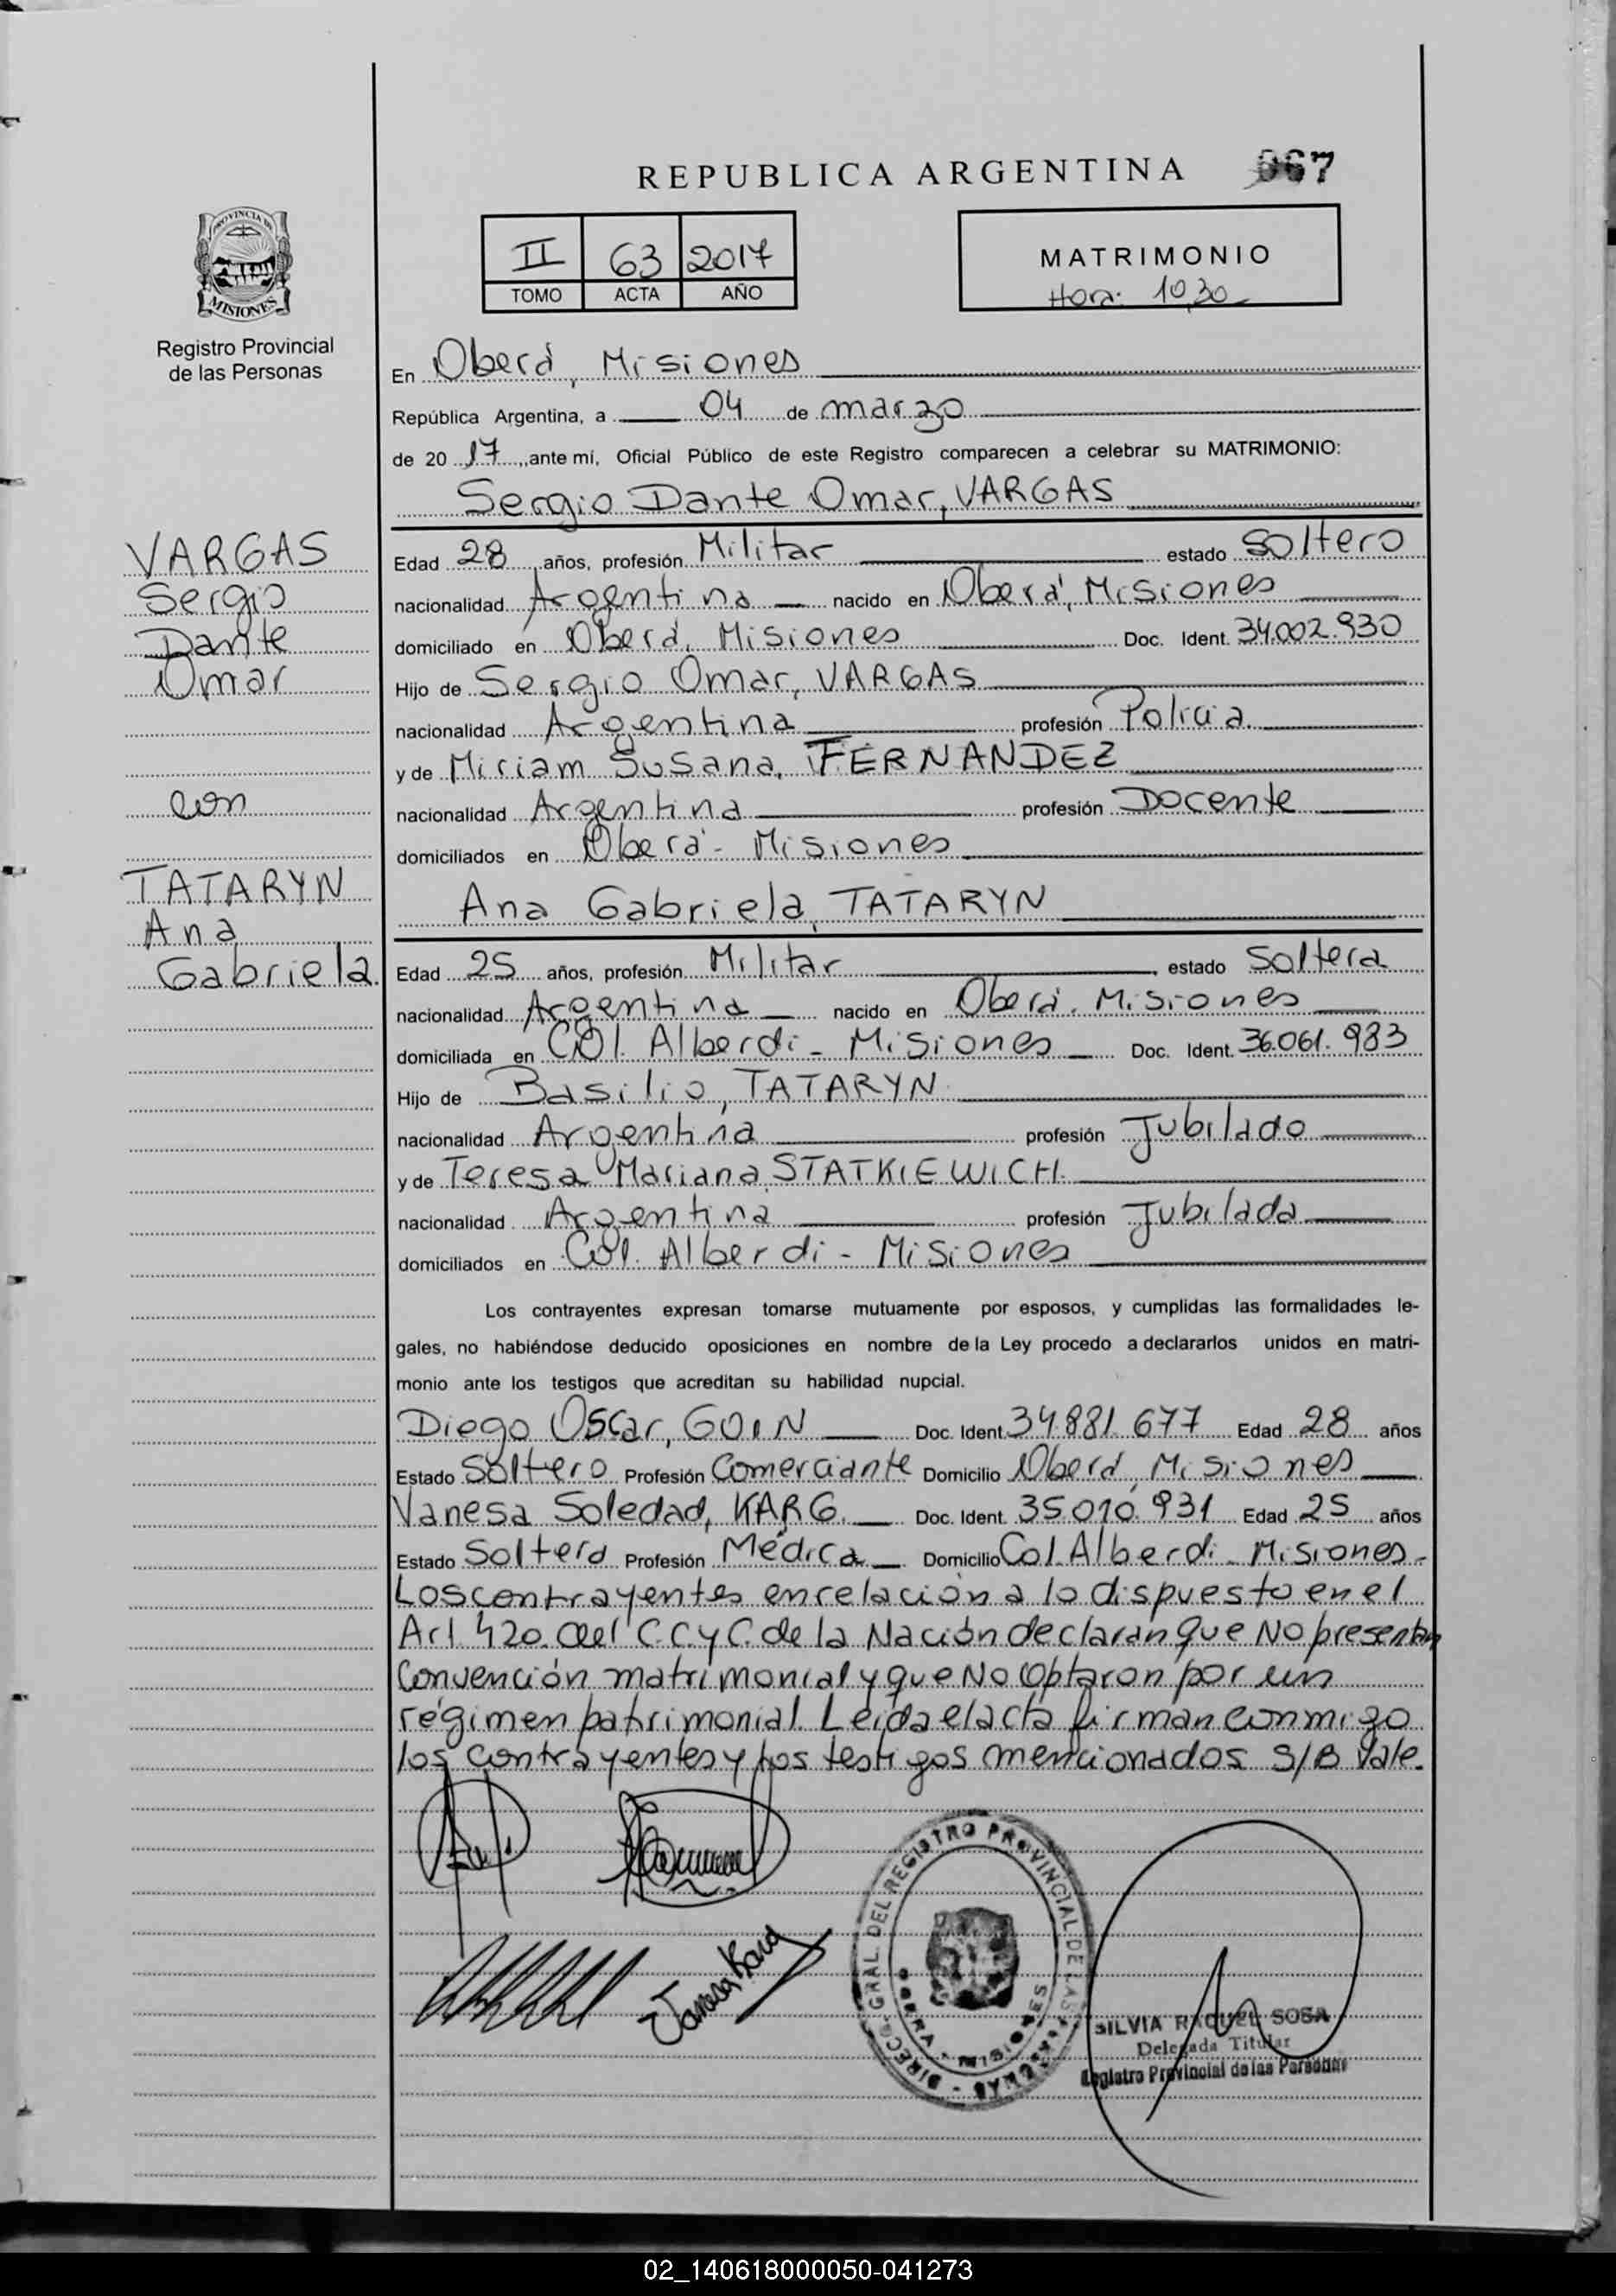 REPUBLICA ARGENTINA 067
PROVINCIA DE
MISIONES
Registro Provincial
de las Personas
II 63 2017
TOMO ACTA AÑO
MATRIMONIO
Hora: 10,30
En Oberá, Misiones
República Argentina, a 04 de marzo
de 20 17, ante mí, Oficial Público de este Registro comparecen a celebrar su MATRIMONIO:
Sergio Dante Omar, VARGAS
VARGAS
Sergio
Dante
Omar
con
TATARYN
Ana
Gabriela.
Edad 28 años, profesión Militar estado Soltero
nacionalidad Argentina nacido en Oberá, Misiones
domiciliado en Oberá, Misiones Doc. Ident. 34.002.930
Hijo de Sergio Omar, VARGAS
nacionalidad Argentina profesión Policia
y de Miriam Susana, FERNANDEZ
nacionalidad Argentina profesión Docente
domiciliados en Oberá - Misiones
Ana Gabriela, TATARYN
Edad 25 años, profesión Militar, estado Soltera
nacionalidad Argentina nacido en Oberá, Misiones
domiciliada en Col. Alberdi - Misiones Doc. Ident. 36.061.983
Hijo de Basilio, TATARYN
nacionalidad Argentina profesión Jubilado
y de Teresa Mariana, STATKIEWICH.
nacionalidad Argentina profesión Jubilada
domiciliados en Col. Alberdi - Misiones
Los contrayentes expresan tomarse mutuamente por esposos, y cumplidas las formalidades le-
gales, no habiéndose deducido oposiciones en nombre de la Ley procedo a declararlos unidos en matri-
monio ante los testigos que acreditan su habilidad nupcial.
Diego Oscar, GOIN Doc. Ident. 34.881.677 Edad 28 años
Estado Soltero Profesión Comerciante Domicilio Oberá, Misiones
Vanesa Soledad, KARG. Doc. Ident. 35.010.931 Edad 25 años
Estado Soltera Profesión Médica Domicilio Col. Alberdi - Misiones-
Los contrayentes en relación a lo dispuesto en el
Art 420. del C.C.y C. de la Nación declaran que No presentan
Convención matrimonial y que No Optaron por un
régimen patrimonial. Leida el acta firman conmigo
los contrayentes y los testigos mencionados S/B Vale.
Vanesa Karg
DIREC. GRAL. DEL REGISTRO PROVINCIAL DE LAS PERSONAS -
OBERA - MISIONES
SILVIA RAQUEL SOSA
Delegada Titular
Registro Provincial de las Personas
02_140618000050-041273